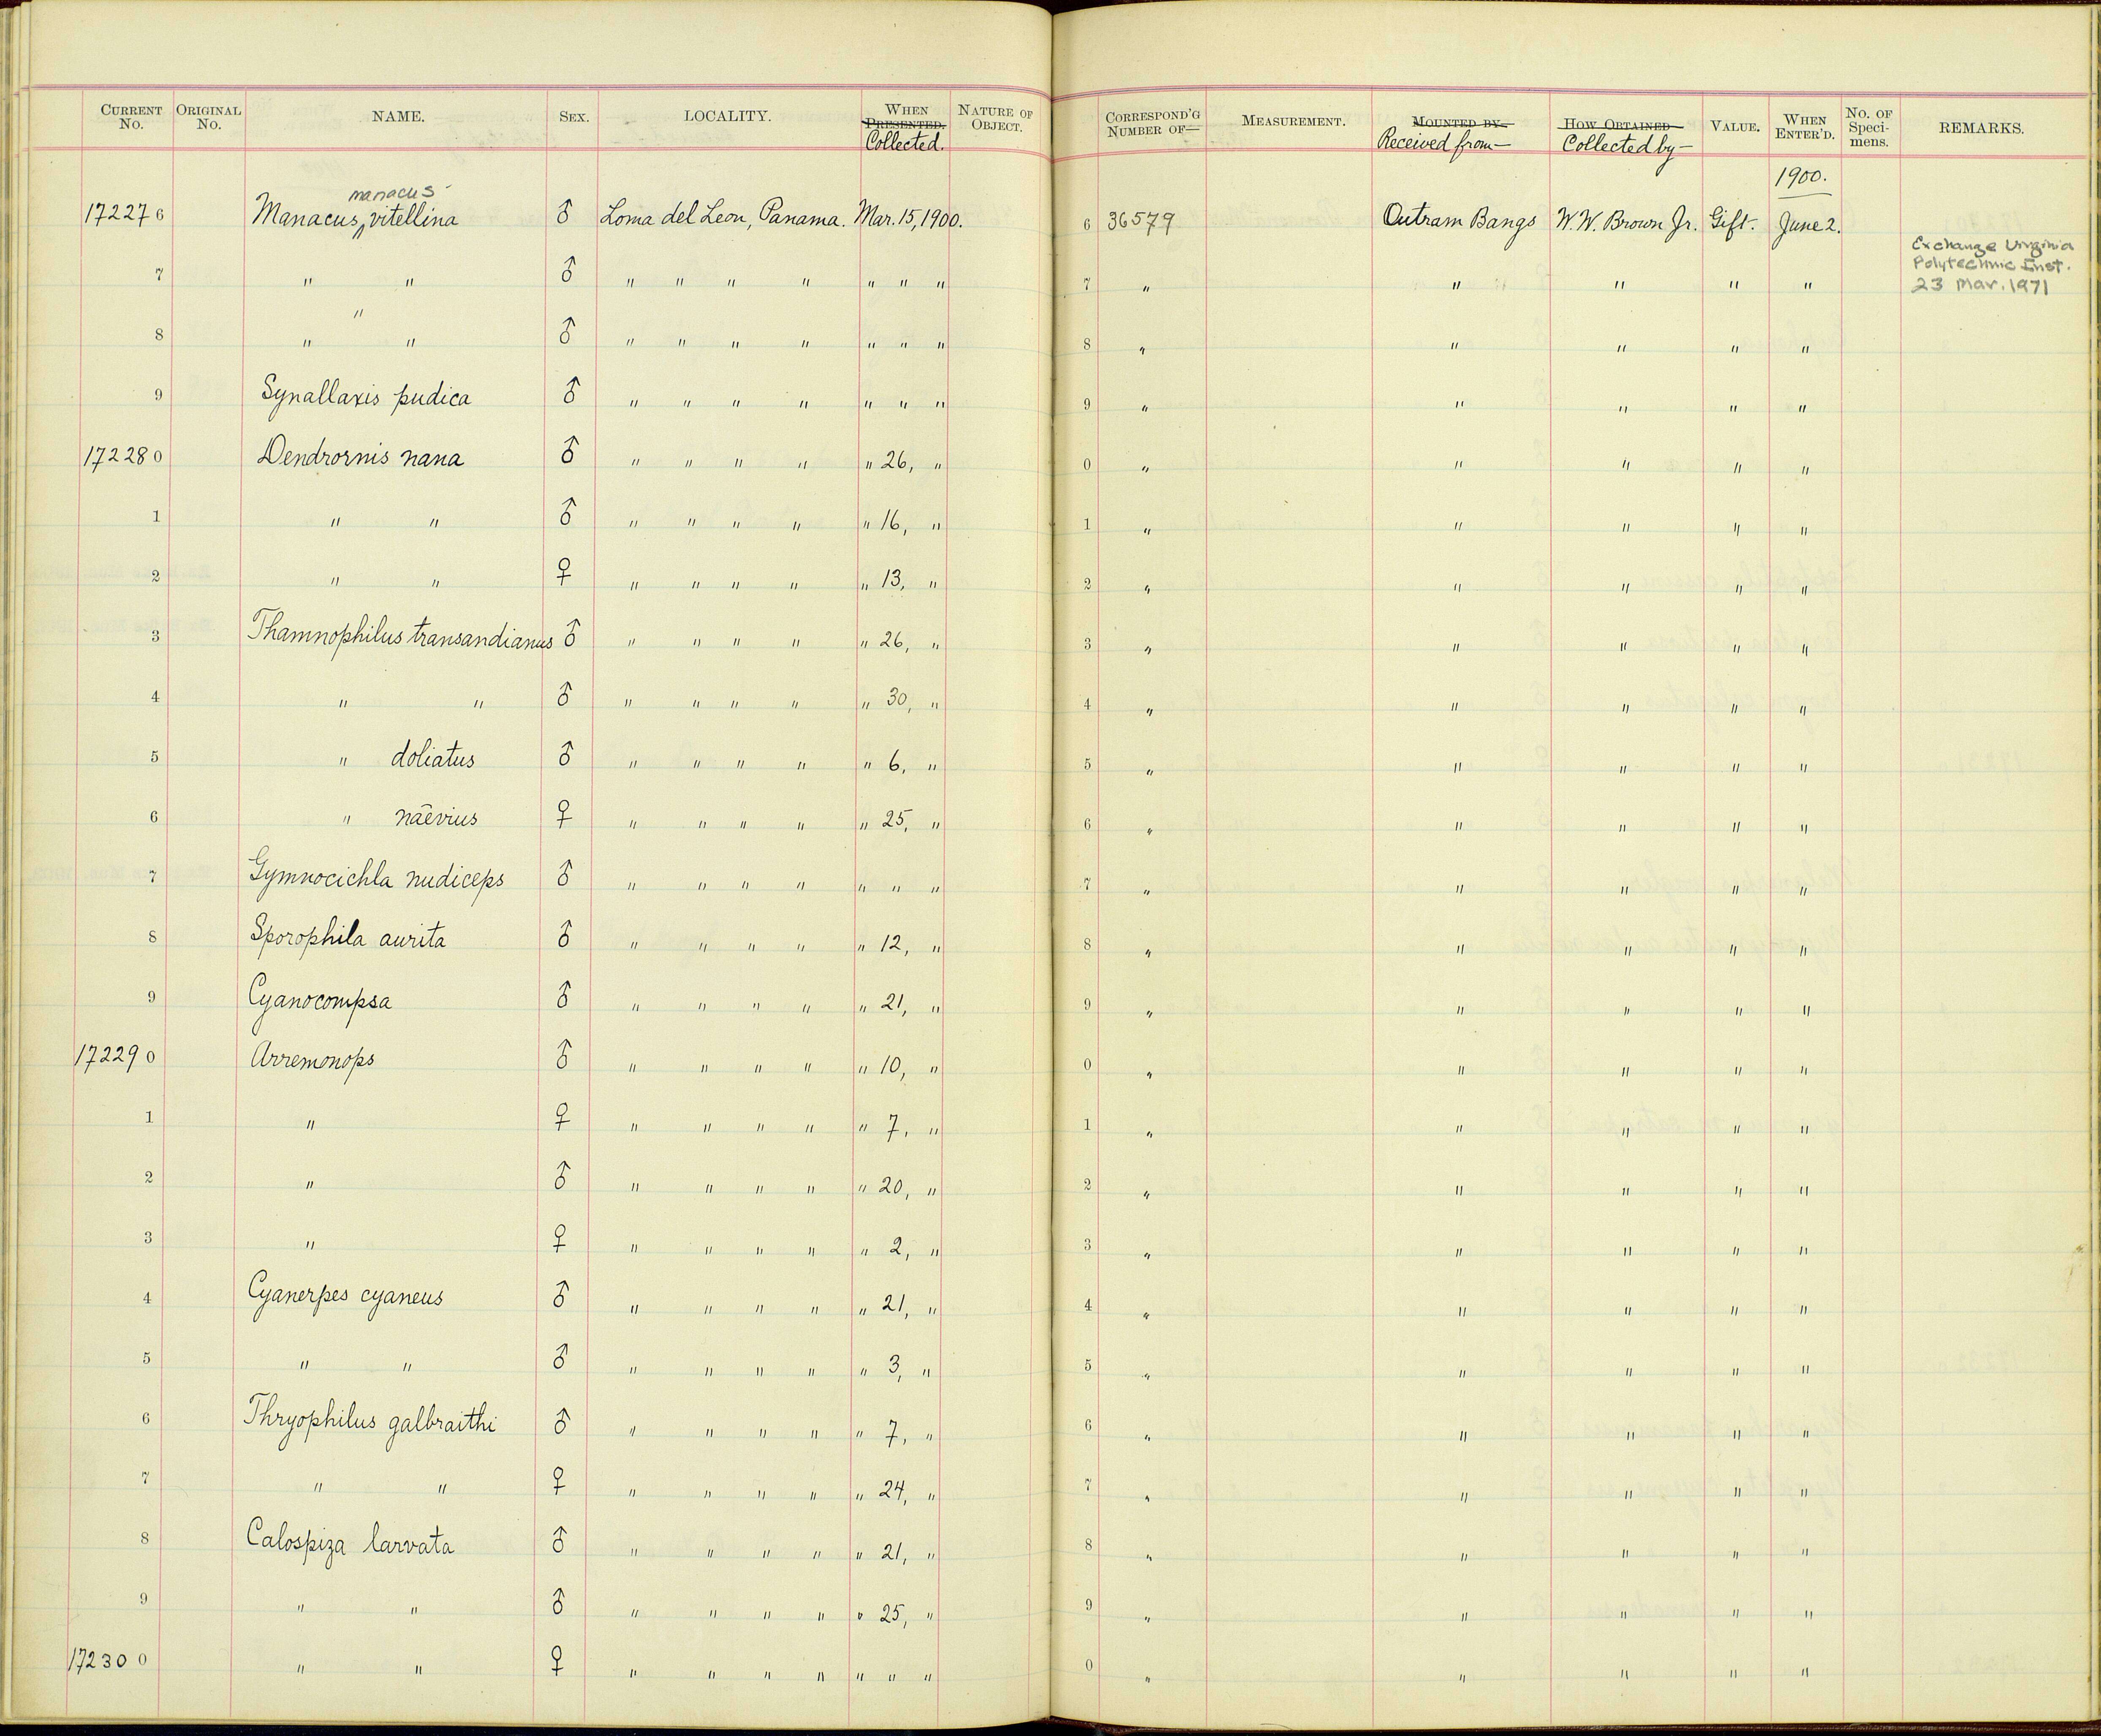 CURRENT No. ORIGINAL No. NAME. SEX. LOCALITY. WHEN PRESENTED. Collected. NATURE OF OBJECT. CORRESPOND'G NUMBER OF— MEASUREMENT. MOUNTED BY— Received from— HOW OBTAINED Collected by— VALUE. WHEN ENTER'D. No. OF Speci-mens. REMARKS.
1900.
manacus
172276 Manacus vitellina ♂ Loma del Leon, Panama. Mar. 15, 1900. 6 36579 Outram Bangs W. W. Brown Jr. Gift. June 2.
Exchange Virginia
Polytechnic Inst.
23 Mar. 1971
7 " " ♂ " " " " " " " 7 " " " " "
"
8 " " ♂ " " " " " " " 8 " " " " "
9 Synallaxis pudica ♂ " " " " " " " 9 " " " " "
172280 Dendrornis nana ♂ " " " " " 26, " 0 " " " " "
1 " " ♂ " " " " " 16, " 1 " " " " "
2 " " ♀ " " " " " 13, " 2 " " " " "
3 Thamnophilus transandianus ♂ " " " " " 26, " 3 " " " " "
4 " " ♂ " " " " " 30, " 4 " " " " "
5 " doliatus ♂ " " " " " 6, " 5 " " " " "
6 " naevius ♀ " " " " " 25, " 6 " " " " "
7 Gymnocichla nudiceps ♂ " " " " " " " 7 " " " " "
8 Sporophila aurita ♂ " " " " " 12, " 8 " " " " "
9 Cyanocompsa ♂ " " " " " 21, " 9 " " " " "
172290 Arremonops ♂ " " " " " 10, " 0 " " " " "
1 " ♀ " " " " " 7, " 1 " " " " "
2 " ♂ " " " " " 20, " 2 " " " " "
3 " ♀ " " " " " 2, " 3 " " " " "
4 Cyanerpes cyaneus ♂ " " " " " 21, " 4 " " " " "
5 " " ♂ " " " " " 3, " 5 " " " " "
6 Thryophilus galbraithi ♂ " " " " " 7, " 6 " " " " "
7 " " ♀ " " " " " 24, " 7 " " " " "
8 Calospiza larvata ♂ " " " " " 21, " 8 " " " " "
9 " " ♂ " " " " " 25, " 9 " " " " "
172300 " " ♀ " " " " " " " 0 " " " " "